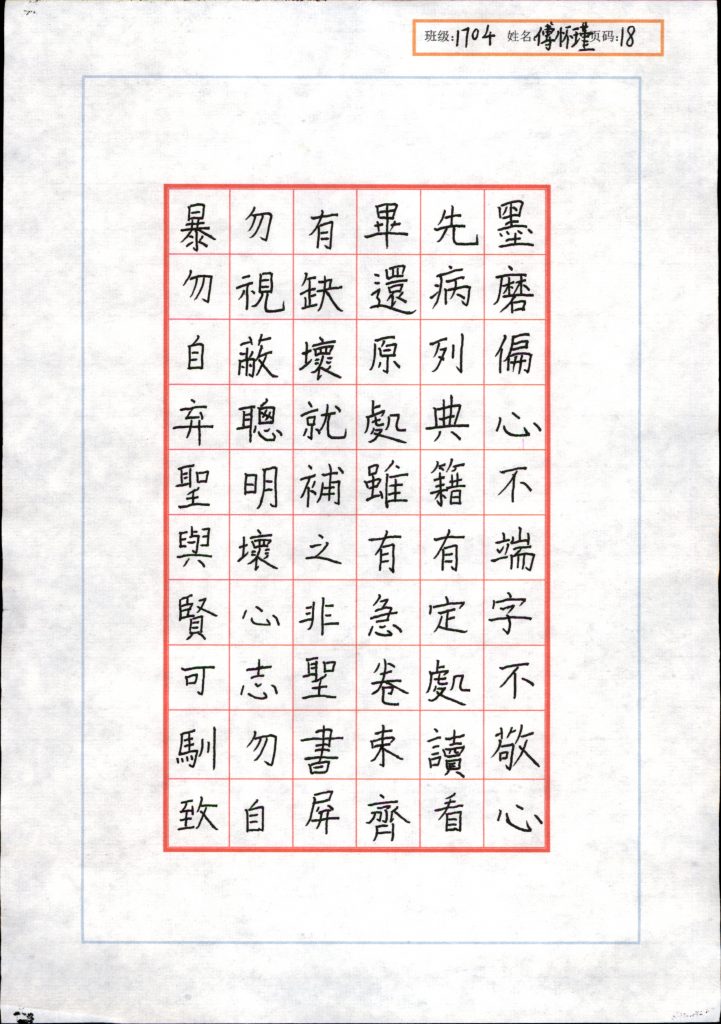 班级:1704 姓名:傅怀瑾 页码:18
墨磨偏心不端字不敬心
先病列典籍有定處讀看
畢還原處雖有急卷束齊
有缺壞就補之非聖書屏
勿視蔽聰明壞心志勿自
暴勿自弃聖與賢可馴致